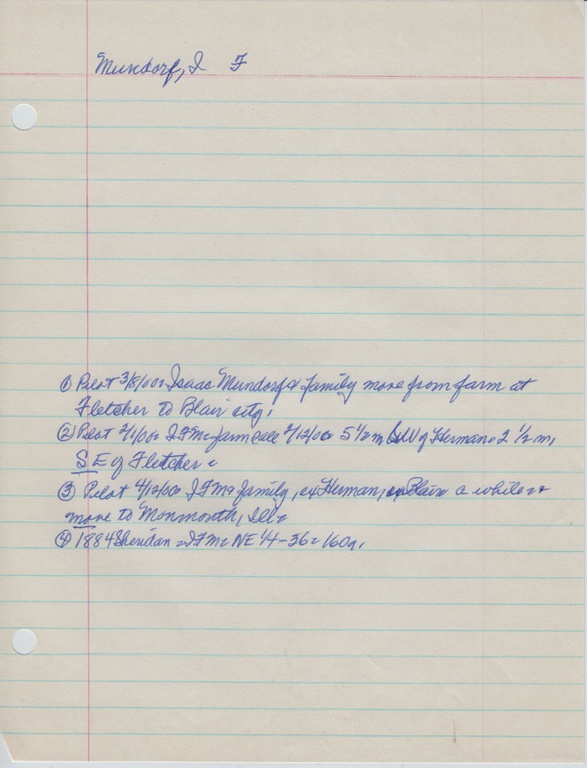 Mundorf, I F
① Pilot 3/8/00= Isaac Mundorf & family move from farm at
Fletcher to Blair city.
② Pilot 2/1/00= I F M= farm sale 2/12/00 5 1/2 m W of Herman= 2 1/2 m,
SE of Fletcher=
③ Pilot 4/12/00 I F M & family, ex Herman, ex Blair a while &
move to Monmouth, Ill=
④ 1884 Sheridan = I F M= NE 1/4 - 36= 160a.